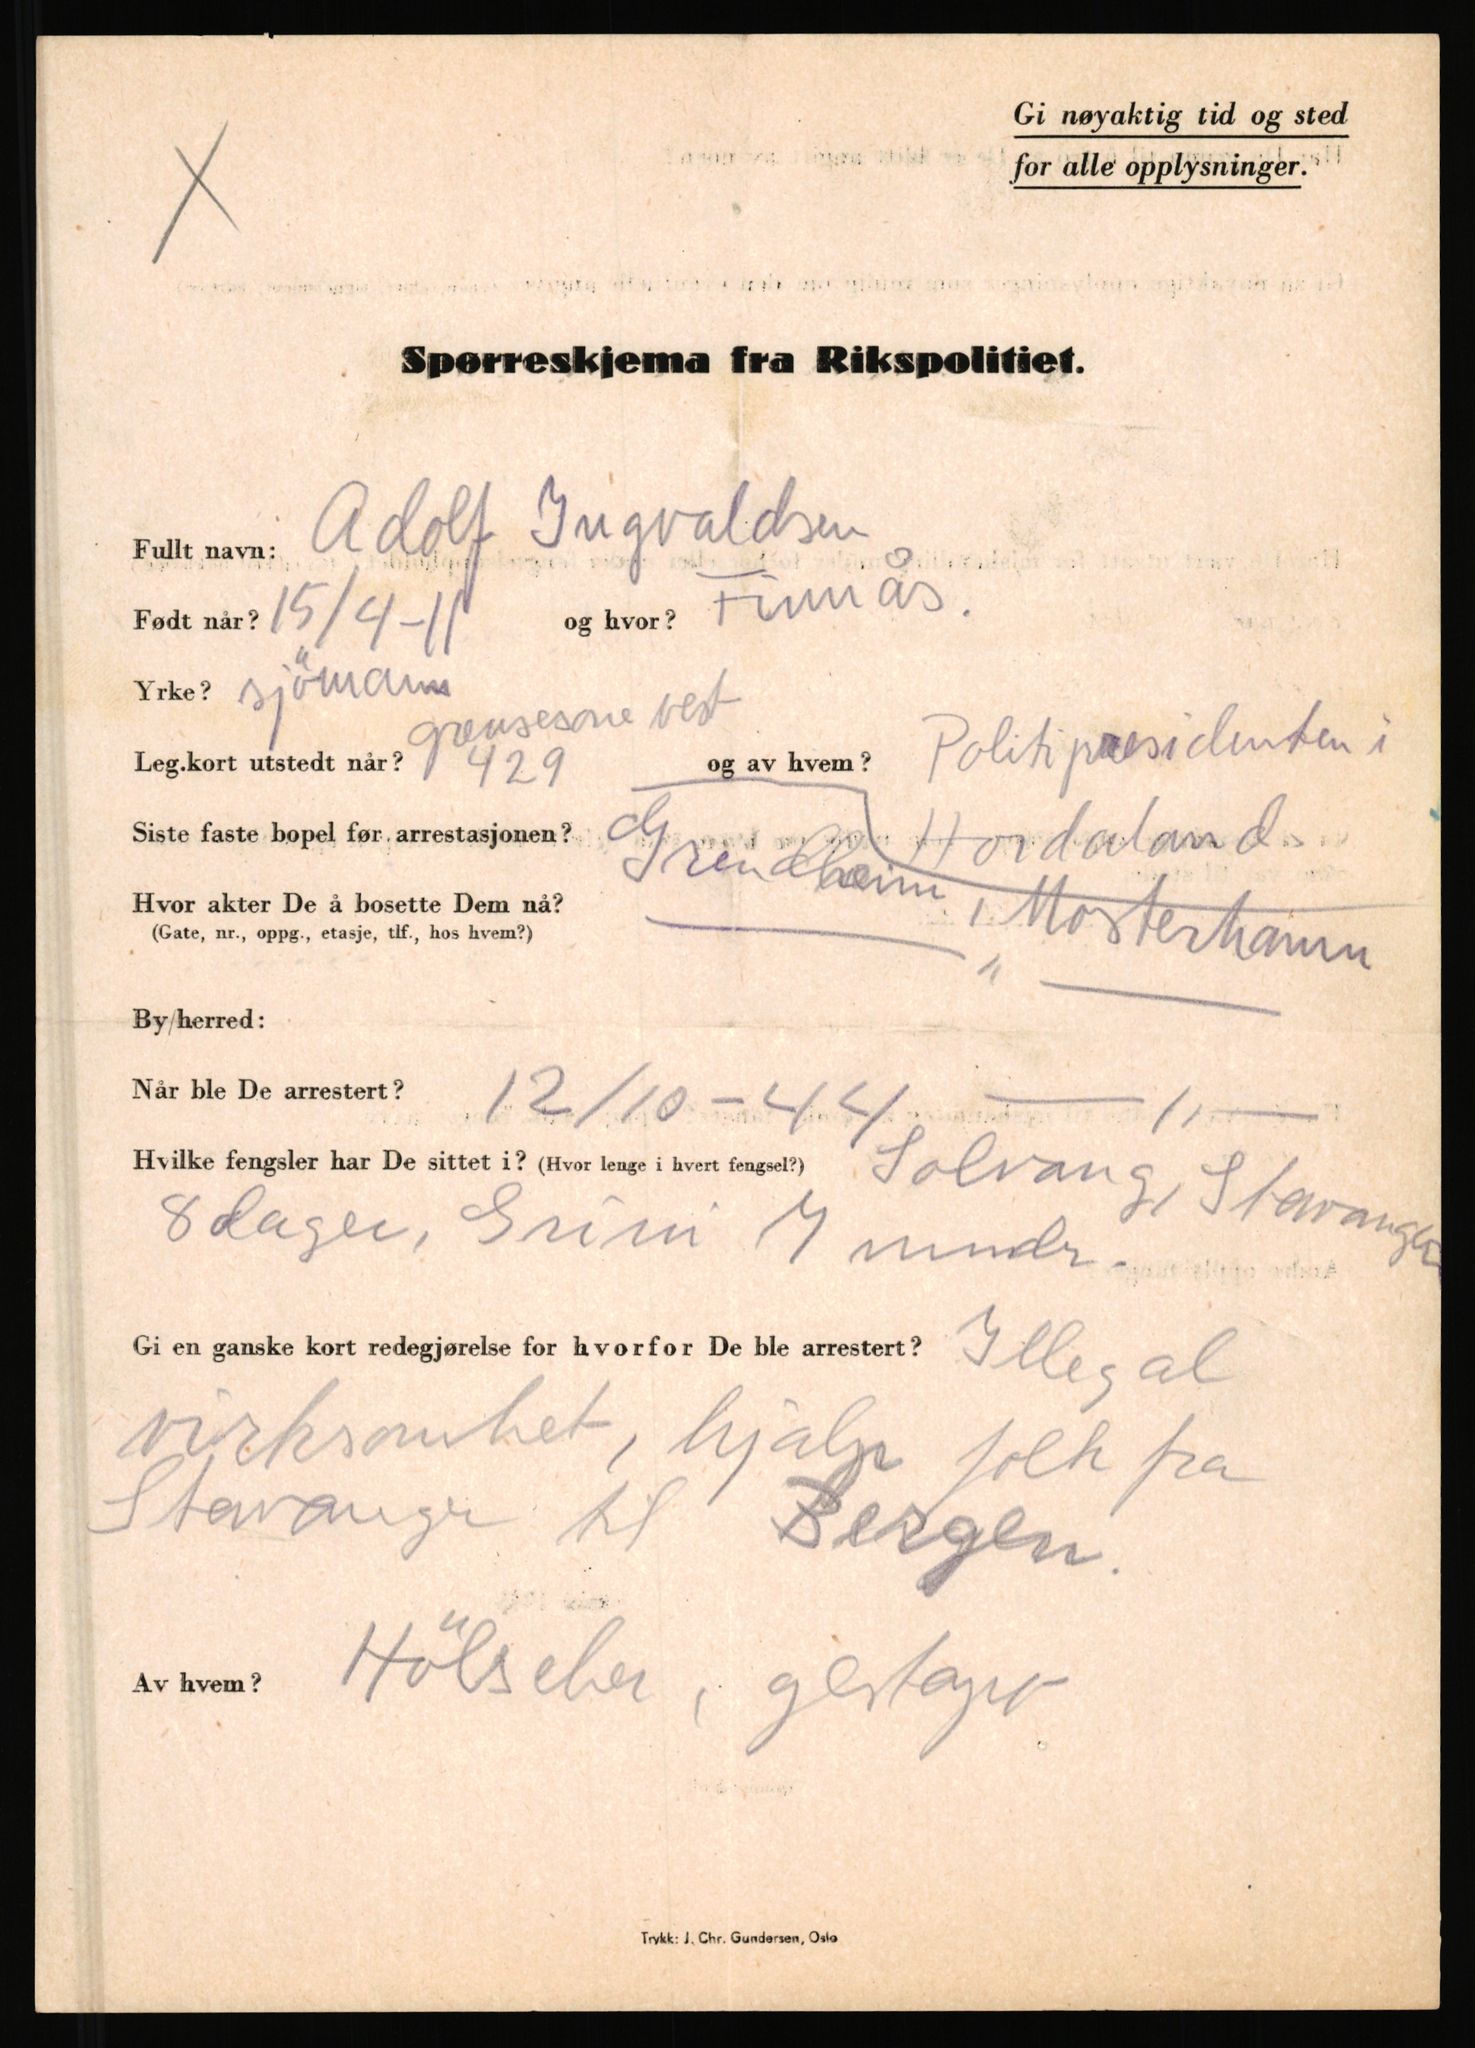 Gi nøyaktig tid og sted
for alle opplysninger.
Spørreskjema fra Rikspolitiet.
Fullt navn: Adolf Ingvaldsen
Født når? 15/4-11 og hvor? Finnås.
Yrke? sjömann
grensesone vest
Leg.kort utstedt når? 429 og av hvem? Politipresidenten i
Hordaland
Siste faste bopel før arrestasjonen? Grendheim, Mosterhamn
Hvor akter De å bosette Dem nå? — " —
(Gate, nr., oppg., etasje, tlf., hos hvem?)
By/herred:
Når ble De arrestert? 12/10-44 — " —
Hvilke fengsler har De sittet i? (Hvor lenge i hvert fengsel?) Solvang, Stavanger
8 dager, Grini 7 mndr.
Gi en ganske kort redegjørelse for hvorfor De ble arrestert? Illegal
virksomhet, hjalp folk fra
Stavanger til Bergen.
Av hvem? Hölscher, gestapo
Trykk: J. Chr. Gundersen, Oslo